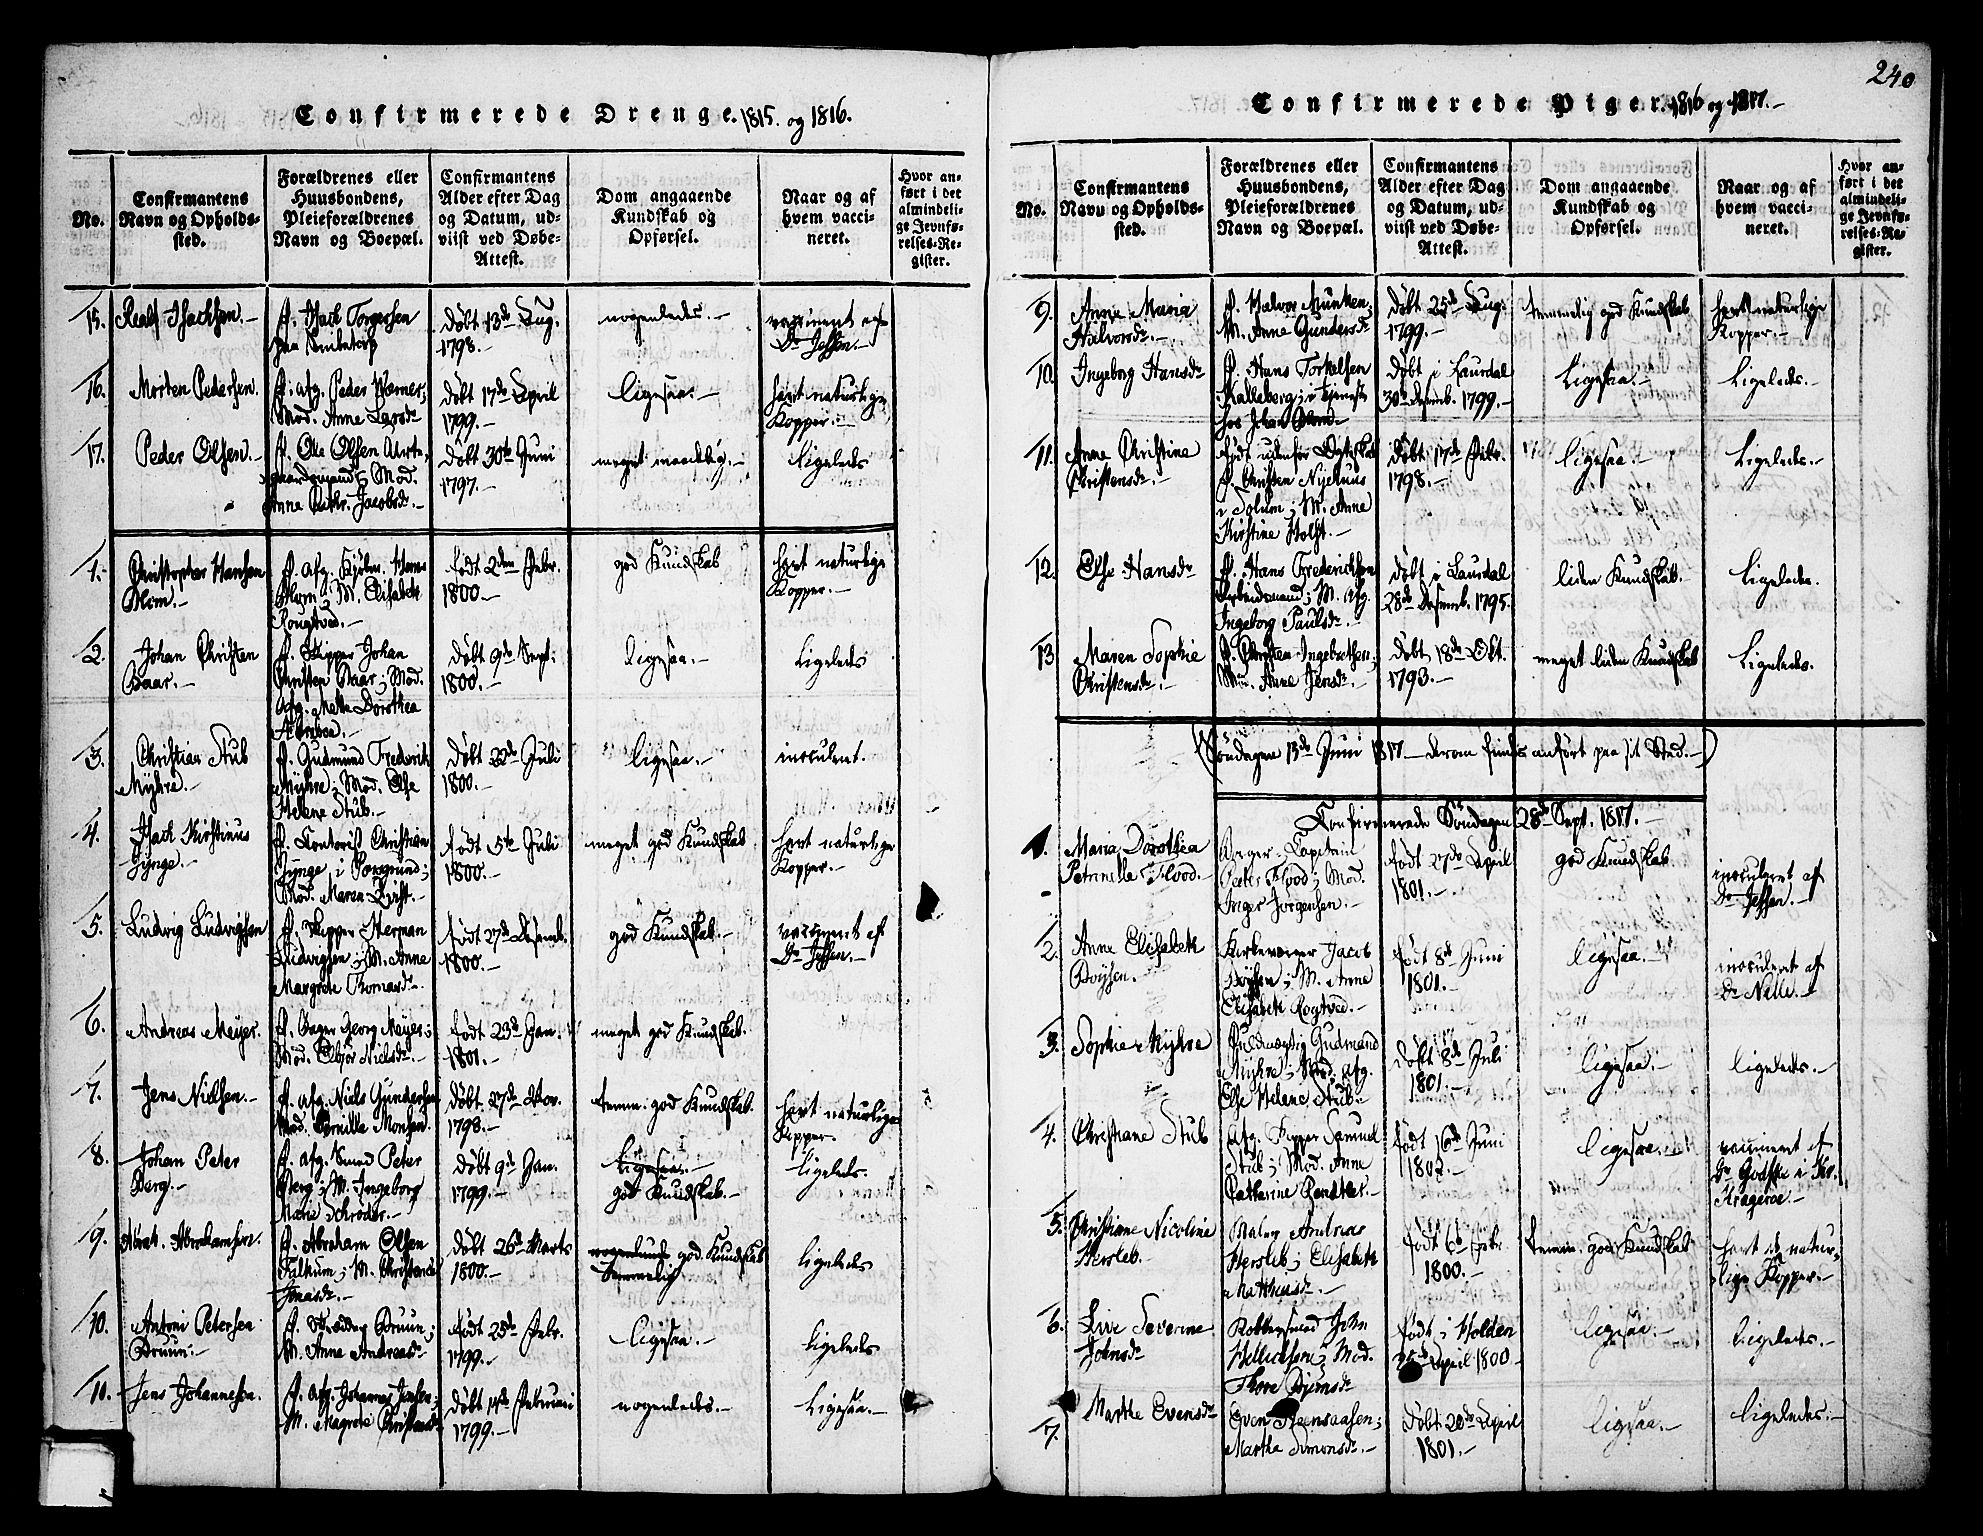 240
Confirmerede Drenge. 1815. og 1816.
No.
Confirmantens
Navn og Opholds-
sted.
Forældrenes eller
Huusbondens,
Pleieforældrenes
Navn og Boepæl.
Confirmantens
Alder efter Dag
og Datum, ud-
viist ved Døbe-
Attest.
Dom angaaende
Kundskab og
Opførsel.
Naar og af
hvem vacci-
neret.
Hvor an-
ført i det
almindeli-
ge Jevnfø-
relses-Re-
gister.
15.
Isachsen.
F. Isach Torgersen
Døbt 13de Aug.
1798.
nogenledes.
vaccineret af
Dr Jessen.
16.
Morten Pedersen.
F. afg. Peder
Mod. Anne Larsdr
Døbt 17de April
1799.
ligesaa.
havt naturlige
Kopper.
17.
Peder Olsen.
F. Ole Olsen
Mod.
Anne Cathr. Jacobsdr.
Døbt 30te Juni
1797.
meget maadelig.
ligeledes
1.
Christopher Hansen
Blom.
F. afg. Kjøbm. Hans
Blom; M. Elisabeth
Rougtved.
født 2den Febr.
1800.
god Kundskab
havt naturlige
Kopper.
2.
Johan Christen
Baar.
F. Skipper Johan
Christen Baar; Mod.
afg. Mette Dorothea
Døbt 9de Sept.
1800.
ligesaa.
ligeledes
3.
Christian Stub
Myhre.
F. Gudmund Frederik
Myhre; Mod. Else
Helene Stub.
Døbt 22de Juli
1800.
ligesaa.
inoculeret.
4.
Isach Kirstinus
Jynge.
F. Contorist Christian
Jynge i Porsgrund;
Mod. Maren
født 5te Juli
1800.
meget god Kundskab
havt naturlige
Kopper.
5.
Ludvig Ludvigsen
F. Skipper Herman
Ludvigsen; M. Anne
Margrete Thomasdr.
født 27de Desemb.
1800.
god Kundskab.
vaccineret af
Dr Jessen.
6.
Andreas Meyer.
F. Bager Georg Meyer;
Mod. Elbjør Nielsdr.
født 23de Jan.
1801.
meget god Kundskab.
7.
Jens Nielsen.
F. afg. Niels Gundersen
Mod. Pernille Monsen.
Døbt. 27de Nov.
1798.
temme. god Kundskab.
havt naturlige
Kopper.
8.
Johan Peter
Berg.
F. afg. Smed Peter
Berg; M. Ingeborg
Marie Schrøder.
Døbt 9de Jan.
1799.
ligesaa.
god Kundskab.
ligeledes.
9.
Abrah. Abrahamsen.
F. Abraham Olsen
Falkum; M. Christence
Jonasdr.
Døbt 26de Marts
1800.
god Kundskab
temmelig
ligeledes
10.
Antoni Petersen
Bruun.
F. Skrædder Bruun;
M. Anne Andreasdr
født 25de Febr.
1799.
ligesaa.
ligeledes
11.
Jens Johannesen.
F. afg. Johannes Jensen;
M. Magrete
Døbt 14de Februari
1799.
nogenledes.
ligesaa.
Confirmerede Piger. 1816 og 1817.
No.
Confirmantens
Navn og Opholds-
sted.
Forældrenes eller
Huusbondens,
Pleieforældrenes
Navn og Boepæl.
Confirmantens
Alder efter Dag
og Datum, ud-
viist ved Døbe-
Attest.
Dom angaaende
Kundskab og
Opførsel.
Naar og af
hvem vacci-
neret.
Hvor an-
ført i det
almindeli-
ge Jevnfø-
relses-Re-
gister.
9.
Anne Maria
Halvorsdr.
F. Halvor Munken;
M. Anne Gundersdr
Døbt 25de Aug.
1799.
temmelig god Kundskab
havt naturlige
Kopper.
10.
Ingeborg Hansdr
F. Hans Torkelsen
Kalleberg; i Tjeneste
hos Johan Blom
Døbt i Laurdal
30te Desemb. 1799.
ligesaa.
ligeledes.
11.
Anne Christine
Christensdr.
født udenfor Ægteskab
F. Christen Nyehuus
i Solum; M. Anne
Kirstine Holst.
Døbt 17de Febr.
1798.
ligesaa.
ligeledes.
12.
Else Hansdr
F. Hans Frederichsen
Arbeidsmand; M. afg.
Ingeborg Paulsdr.
Døbt i Laurdal
28de Desemb. 1795.
liden Kundskab.
ligeledes.
13
Maren Sophie
Christensdr.
F. Christen Ingebretsen;
Mod. Anne Jensdr.
Døbt 18de Okt.
1793.
meget liden Kundskab
ligeledes.
(Søndagen 13de Juni 1817 — derom findes anført paa sit Sted.)
Confirmerede Søndagen 28de Sept. 1817.
1.
Maria Dorothea
Petronelle Flood.
Borger Capitain
Peter Flood; Mod.
Inger Jørgensen.
født 27de April
1801.
god Kundskab
inoculeret af
Dr Jessen.
2.
Anne Elisabeth
Boysen.
Kirkeværger Jacob
Boysen; M. Anne
Elisabeth Rogtved.
født 8de Juni
1801.
ligesaa.
inoculeret af
Dr
3.
Sophie Myhre
Fuldmægtig Gudmund
Myhre; Mod. afg.
Else Helene Stub.
Døbt 8de Juli
1801.
ligesaa.
ligeledes.
4.
Christiane Stub
Afg. Skipper Samuel
Stub; Mod. Anne
Catharine Rendtler.
født 16de Juni
1802.
ligesaa.
vaccineret af
Dr
Kragerøe.
5.
Christiane Nicoline
Hersleb.
Maler Andreas
Hersleb; Elisabeth
Mathiasdr.
født 6te Febr.
1800.
temme. god Kundskab
havt de natur-
lige Kopper.
6.
Live Severine
Johnsdr
Kobbersmed John
Mod.
Thore Bjørnsdr
født i Holden
April 1800
ligesaa.
ligeledes.
7.
Marthe Evensdr
Even Steensaasen;
Marthe Simonsdr.
Døbt 20de April
1801.
ligesaa.
ligeledes.